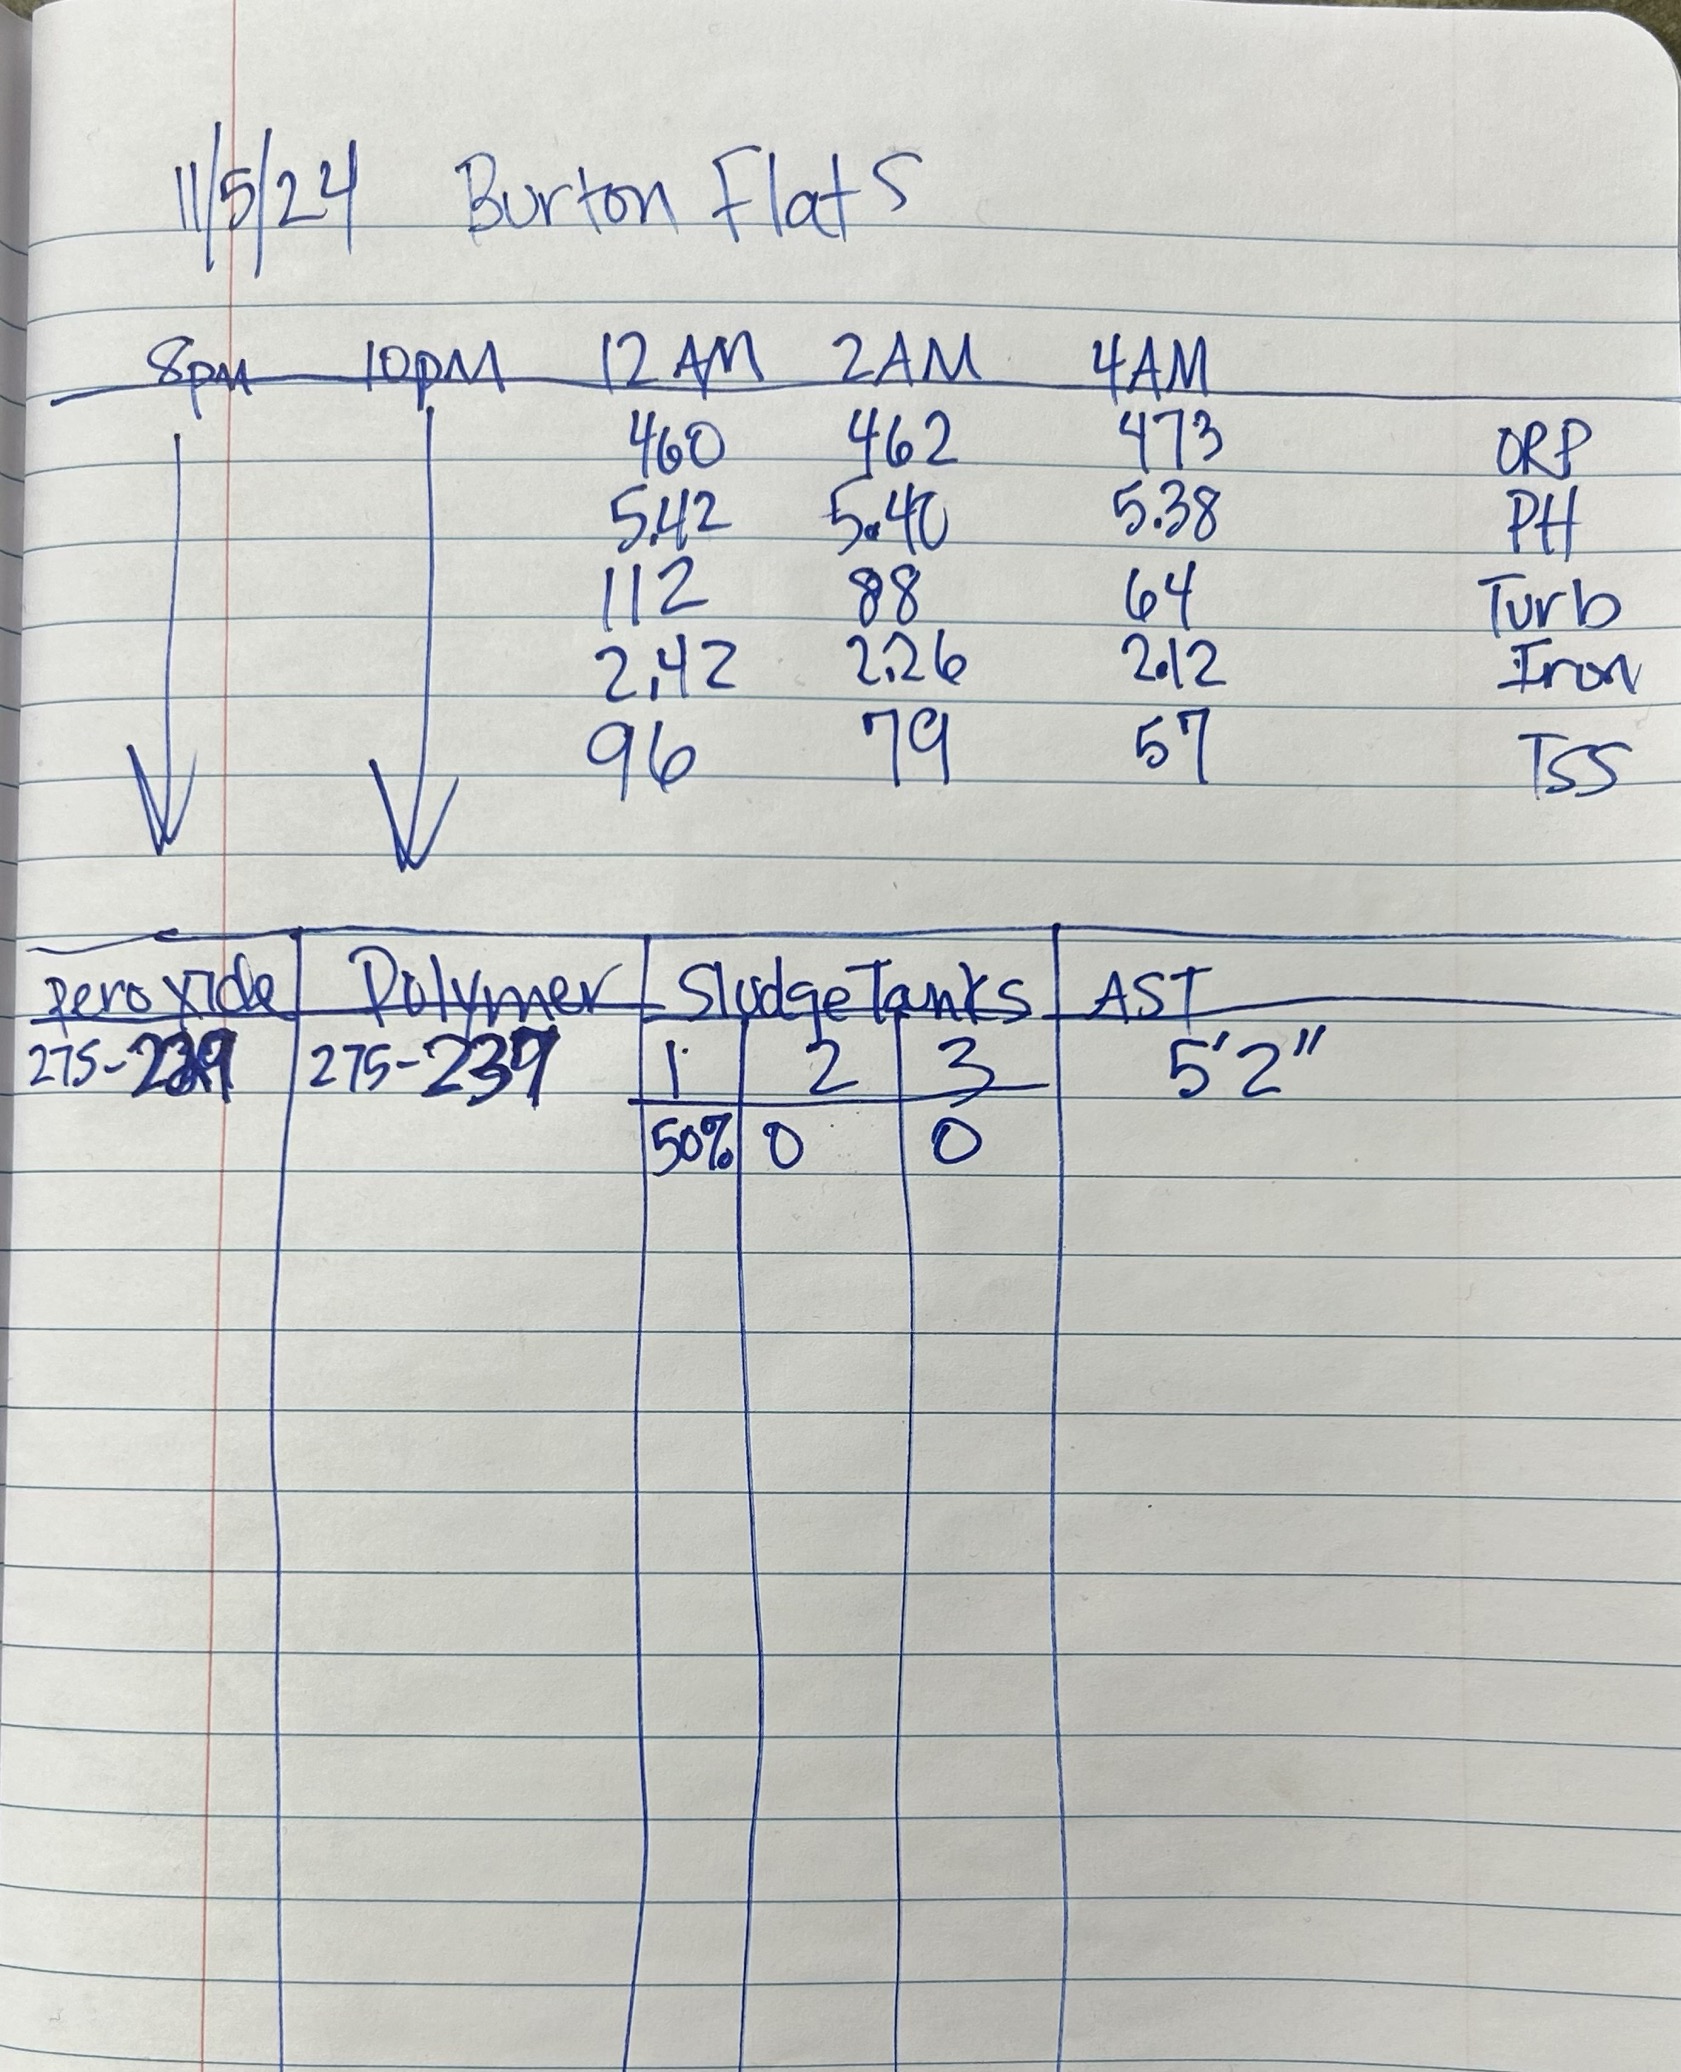 11/5/24 Burton Flats
8pm 10pM 12 AM 2AM 4AM
460 462 473 ORP
5.42 5.40 5.38 PH
112 88 64 Turb
2.42 2.26 2.12 Iron
96 79 57 TSS
peroxide Polymer Sludge Tanks AST
275- 275-239 1 2 3 5'2"
50% 0 0